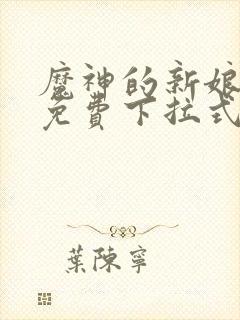 魔神的新娘
免費下拉式
葉陳寧